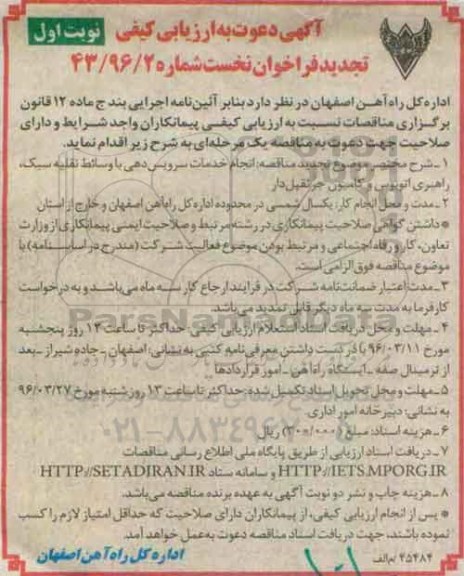 آگهی دعوت به ارزیابی کیفی
نوبت اول
تجدید فراخوان نخست شماره ۴۳/۹۶/۲
اداره کل راه آهن اصفهان در نظر دارد بنابر آئین نامه اجرایی بند ج ماده ۱۲ قانون
برگزاری مناقصات نسبت به ارزیابی کیفی پیمانکاران واجد شرایط و دارای
صلاحیت جهت دعوت به مناقصه یک مرحله‌ای به شرح زیر اقدام نماید.
۱ـ شرح مختصر موضوع تجدید مناقصه: انجام خدمات سرویس دهی با وسائط نقلیه سبک،
راهبری اتوبوس و کامیون جرثقیل دار
۲ـ مدت و محل انجام کار: یکسال شمسی در محدوده اداره کل راه‌آهن اصفهان و خارج از استان
* داشتن گواهی صلاحیت پیمانکاری در رشته مرتبط و صلاحیت ایمنی پیمانکاری از وزارت
تعاون، کار و رفاه اجتماعی و مرتبط بودن موضوع فعالیت شرکت (مندرج در اساسنامه) با
موضوع مناقصه فوق الزامی است.
۳ـ مدت اعتبار ضمانت‌نامه شرکت در فرایند ارجاع کار سه ماه می‌باشد و به درخواست
کارفرما به مدت سه ماه دیگر قابل تمدید می‌باشد.
۴ـ مهلت و محل دریافت اسناد استعلام ارزیابی کیفی: حداکثر تا ساعت ۱۳ روز پنجشنبه
مورخ ۹۶/۰۳/۱۱ با در دست داشتن معرفی‌نامه کتبی به نشانی: اصفهان ـ جاده شیراز ـ بعد
از ترمینال صفه ـ ایستگاه راه آهن ـ امور قراردادها
۵ـ مهلت و محل تحویل اسناد تکمیل شده: حداکثر تا ساعت ۱۳ روز شنبه مورخ ۹۶/۰۳/۲۷
به نشانی: دبیرخانه امور اداری.
۶ـ هزینه اسناد: مبلغ (۳۰۰/۰۰۰) ریال
۷ـ دریافت اسناد ارزیابی از طریق پایگاه ملی اطلاع رسانی مناقصات
HTTP://IETS.MPORG.IR و سامانه ستاد HTTP://SETADIRAN.IR
۸ـ هزینه چاپ و نشر دو نوبت آگهی به عهده برنده مناقصه می‌باشد.
* پس از انجام ارزیابی کیفی، از پیمانکاران دارای صلاحیت که حداقل امتیاز لازم را کسب
نموده باشند، جهت دریافت اسناد مناقصه دعوت به عمل خواهد آمد.
۲۵۴۸۴ / م الف
اداره کل راه آهن اصفهان
ParsNamadData
۰۲۱-۸۸۳۴۹۶۷۰